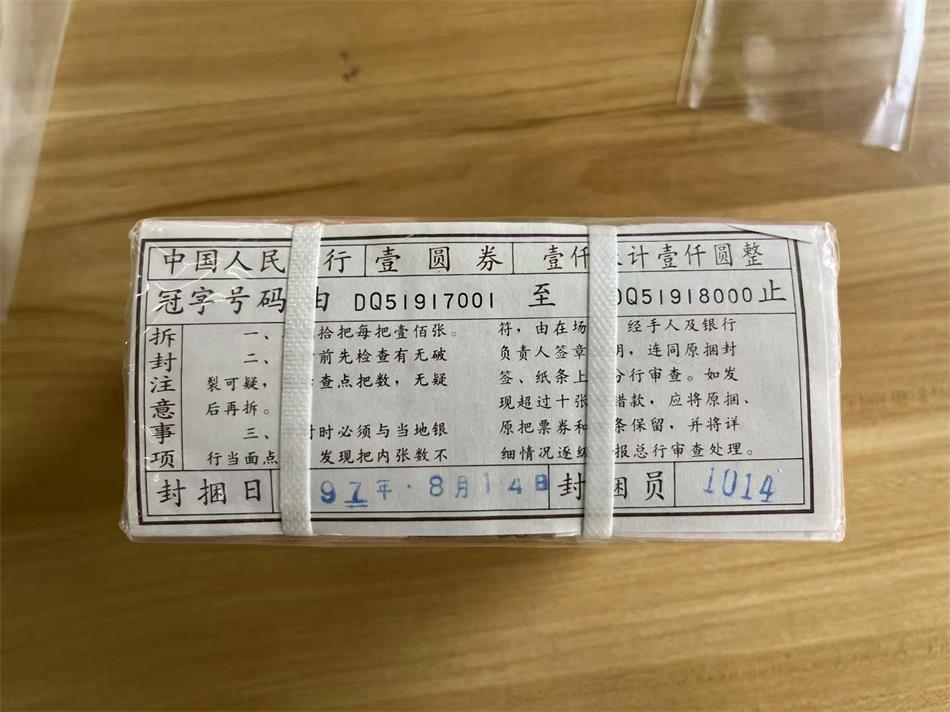 中国人民 行 壹圆券 壹仟 计壹仟圆整
冠字号码由 DQ51917001 至 DQ51918000止
拆封注意事项
一、 拾把每把壹佰张。
二、 前先检查有无破
裂可疑， 查点把数，无疑
后再拆。
三、 时必须与当地银
行当面点 发现把内张数不
符，由在场 经手人及银行
负责人签章 明，连同原捆封
签、纸条上 分行审查。如发
现超过十张 错款，应将原捆、
原把票券和 条保留，并将详
细情况逐级 报总行审查处理。
封捆日 97年·8月14日 封捆员 1014